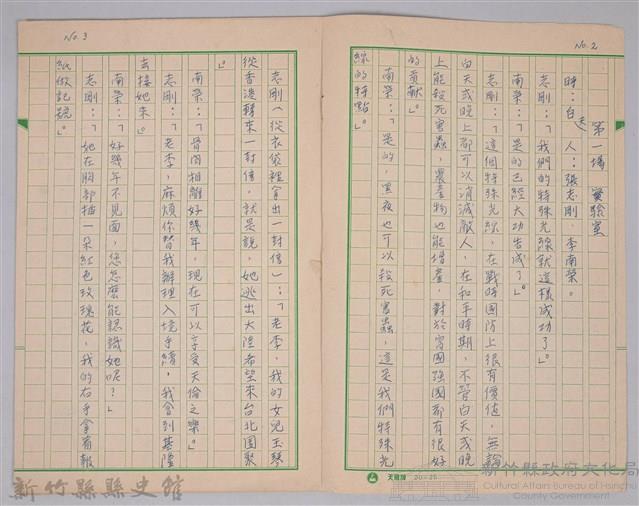 No. 2
第一場 實驗室
時：白天 人：張志剛．李南榮。
志剛：「我們的特殊光線就這樣成功了」。
南榮：「是的已經大功告成了」。
志剛：「這個特殊光線，在戰時國防上很有價值，無論
白天或晚上都可以消滅敵人，在和平時期，不管白天或晚
上能殺死害蟲，農產物也能增產，對於富國強國都有很好
的貢獻」。
南榮：「是的，黑夜也可以殺死害蟲，這是我們特殊光
線的特點」。
No. 3
志剛（從衣袋裡拿出一封信）：「老李，我的女兒玉琴
從香港轉來一封信，就是說，她逃出大陸希望來台北團聚
」。
南榮：「骨肉相離好幾年，現在可以享受天倫之樂」。
志剛：「老李，麻煩你替我辦理入境手續，我會到基隆
去接她來」。
南榮：「好幾年不見面，您怎麼能認識她呢？」
志剛：「她在胸部插一朵紅色玫瑰花，我的右手拿着報
紙做記號」。
20×25
新竹縣縣史館
新竹縣政府文化局
Cultural Affairs Bureau of Hsinchu
County Government